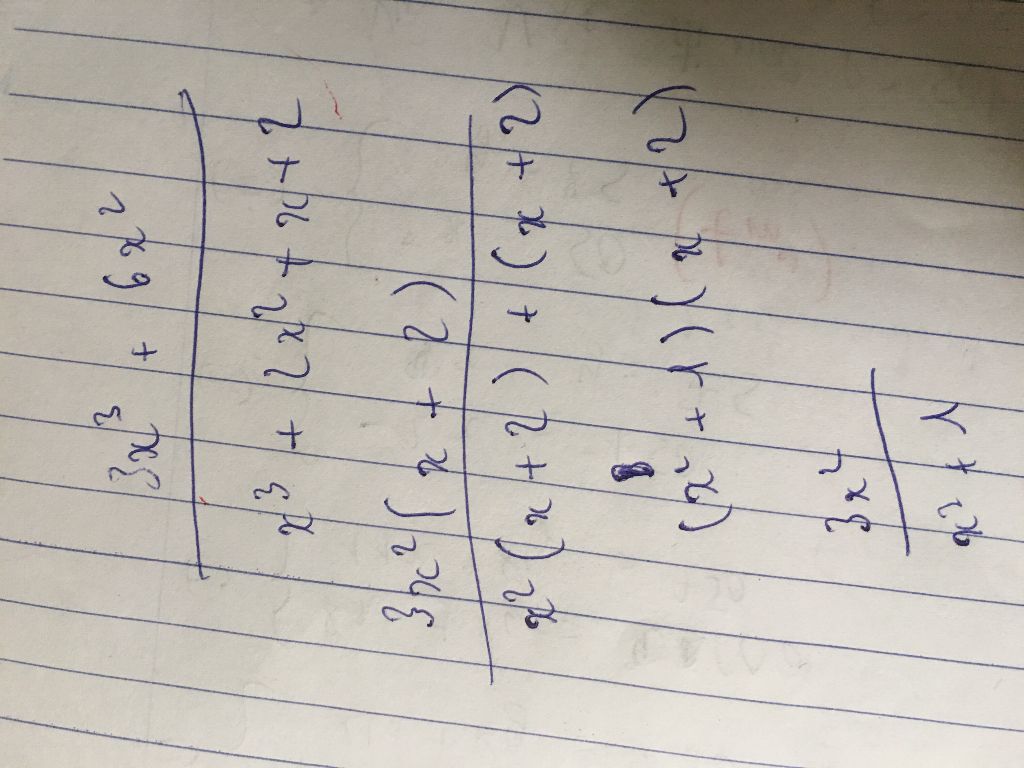 3x³ + 6x²
x³ + 2x² + x + 2
3x²(x + 2)
x²(x + 2) + (x + 2)
(x² + 1)(x + 2)
3x²
x² + 1